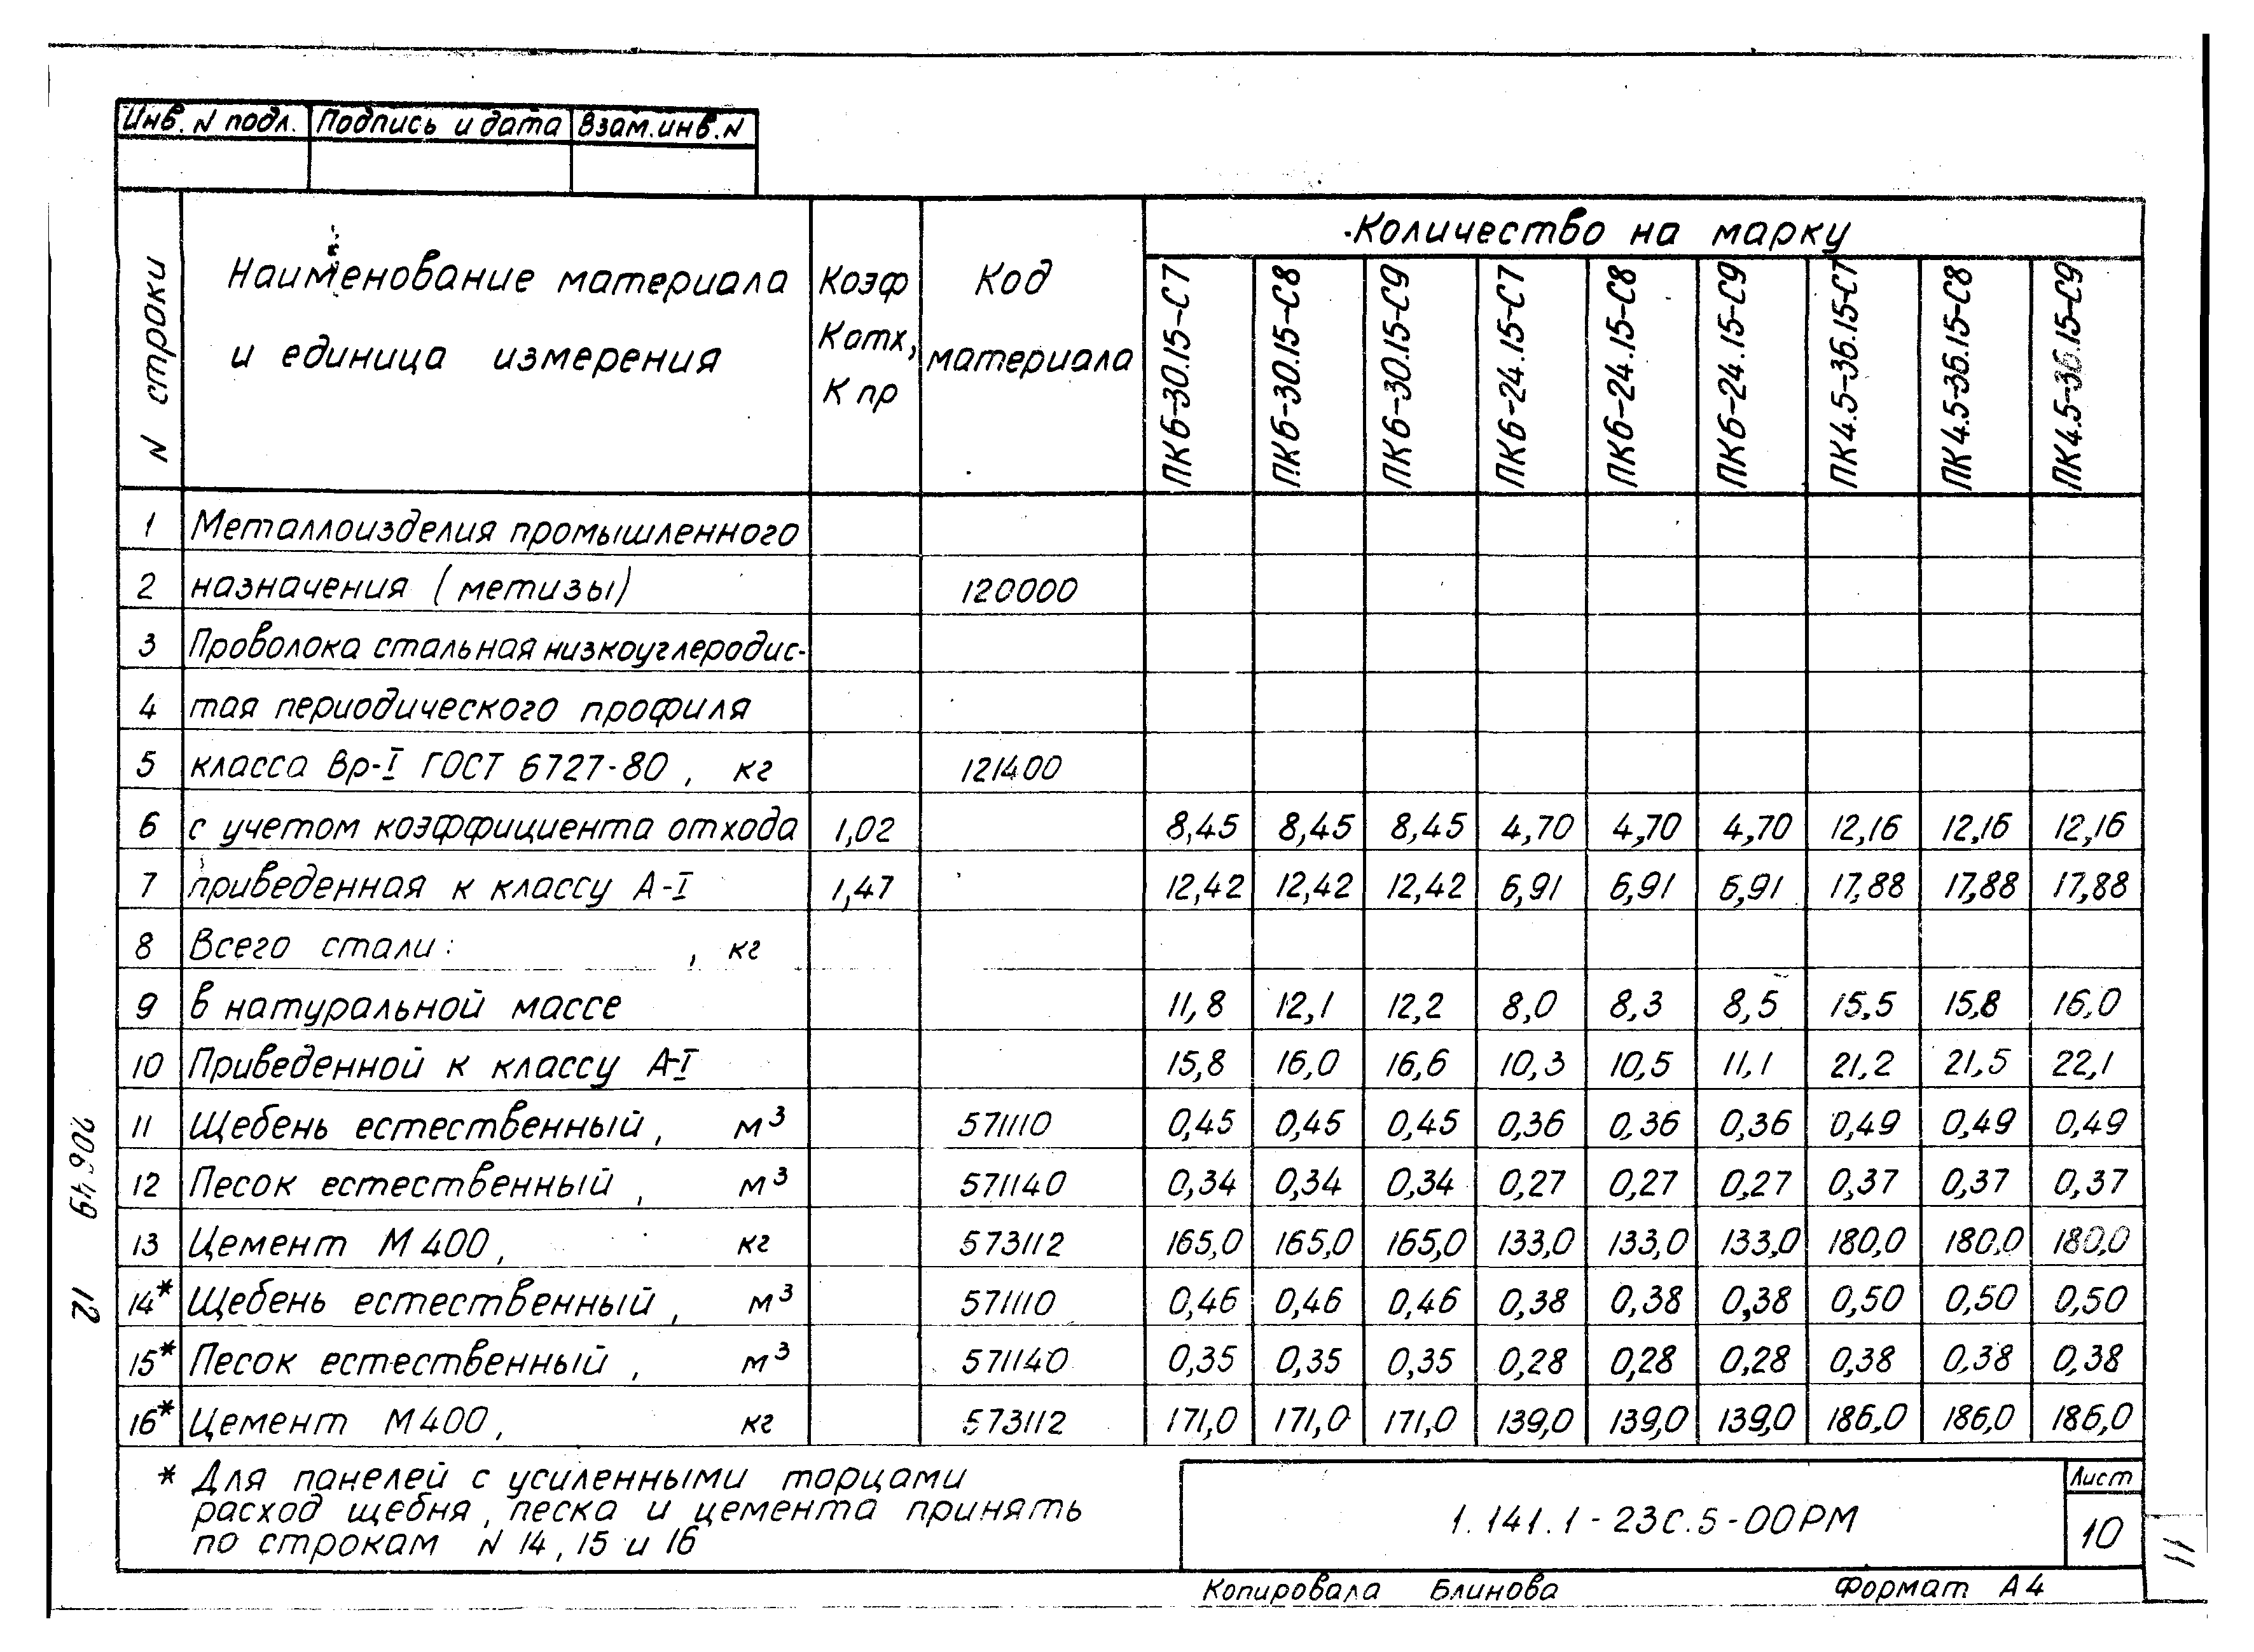 Инв. N подл. Подпись и дата Взам. инв. N
N строки Наименование материала и единица измерения Коэф Котх, К пр Код материала Количество на марку
ПК6-30.15-С7 ПК6-30.15-С8 ПК6-30.15-С9 ПК6-24.15-С7 ПК6-24.15-С8 ПК6-24.15-С9 ПК4.5-36.15-С7 ПК4.5-36.15-С8 ПК4.5-36.15-С9
1 Металлоизделия промышленного
2 назначения (метизы) 120000
3 Проволока стальная низкоуглеродис-
4 тая периодического профиля
5 класса Вр-I ГОСТ 6727-80, кг 121400
6 с учетом коэффициента отхода 1,02 8,45 8,45 8,45 4,70 4,70 4,70 12,16 12,16 12,16
7 приведенная к классу А-I 1,47 12,42 12,42 12,42 6,91 6,91 6,91 17,88 17,88 17,88
8 Всего стали: , кг
9 в натуральной массе 11,8 12,1 12,2 8,0 8,3 8,5 15,5 15,8 16,0
10 Приведенной к классу А-I 15,8 16,0 16,6 10,3 10,5 11,1 21,2 21,5 22,1
11 Щебень естественный, м³ 571110 0,45 0,45 0,45 0,36 0,36 0,36 0,49 0,49 0,49
12 Песок естественный, м³ 571140 0,34 0,34 0,34 0,27 0,27 0,27 0,37 0,37 0,37
13 Цемент М400, кг 573112 165,0 165,0 165,0 133,0 133,0 133,0 180,0 180,0 180,0
14* Щебень естественный, м³ 571110 0,46 0,46 0,46 0,38 0,38 0,38 0,50 0,50 0,50
15* Песок естественный, м³ 571140 0,35 0,35 0,35 0,28 0,28 0,28 0,38 0,38 0,38
16* Цемент М400, кг 573112 171,0 171,0 171,0 139,0 139,0 139,0 186,0 186,0 186,0
* Для панелей с усиленными торцами
расход щебня, песка и цемента принять
по строкам N 14, 15 и 16
1.141.1-23С.5-00РМ
Лист
10
Копировала Блинова Формат А4
20649 12
11